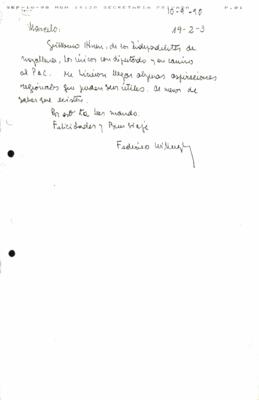 SEP-10-90 MON 14:20 SECRETARIA P.01
19-2-3
Marcelo:
Guillermo de los Independientes de
Magallanes, los únicos con diputado y en camino
al P.a.C. Me hicieron llegar algunas aspiraciones
regionales que pueden ser útiles. Al menos de
saber que existen.
Por eso te las mando.
Felicidades y Buen viaje
Federico Willoughby